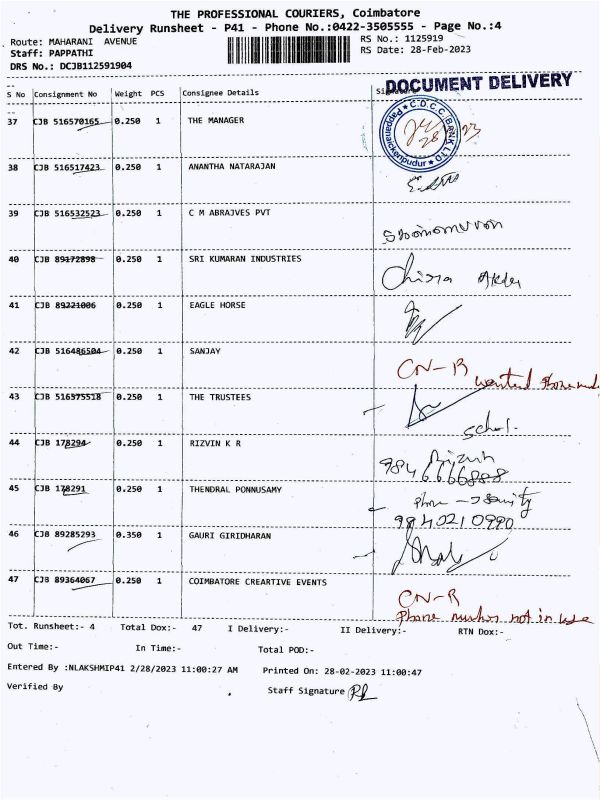 THE PROFESSIONAL COURIERS, Coimbatore
Delivery Runsheet - P41 - Phone No.:0422-3505555 - Page No.:4
Route: MAHARANI AVENUE
RS No.: 1125919
Staff: PAPPATHI
RS Date: 28-Feb-2023
DRS No.: DCJB112591904
DOCUMENT DELIVERY
S No Consignment No Weight PCS Consignee Details
C.D.C.C. BANK LTD
Pappanaickenpudur
37 CJB 516570165 0.250 1 THE MANAGER
38 CJB 516517423 0.250 1 ANANTHA NATARAJAN
39 CJB 516532523 0.250 1 C M ABRAJVES PVT
40 CJB 89172898 0.250 1 SRI KUMARAN INDUSTRIES
41 CJB 89221006 0.250 1 EAGLE HORSE
42 CJB 516486504 0.250 1 SANJAY CN-R
43 CJB 516575518 0.250 1 THE TRUSTEES
44 CJB 178294 0.250 1 RIZVIN K R
9846666888
45 CJB 178291 0.250 1 THENDRAL PONNUSAMY
46 CJB 89285293 0.350 1 GAURI GIRIDHARAN
47 CJB 89364067 0.250 1 COIMBATORE CREARTIVE EVENTS CN-R
Phone number not in use
Tot. Runsheet:- 4 Total Dox:- 47 I Delivery:- II Delivery:- RTN Dox:-
Out Time:- In Time:- Total POD:-
Entered By :NLAKSHMIP41 2/28/2023 11:00:27 AM Printed On: 28-02-2023 11:00:47
Verified By Staff Signature